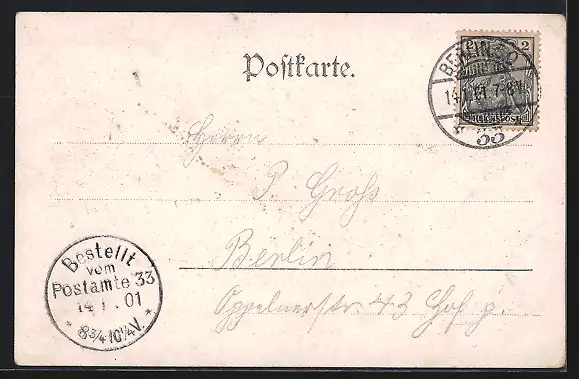 Postkarte.
2 2
BERLIN SO
14.1.01 7-8V
33
REICHSPOST
Herrn
P. Groß
Berlin
Oppelnerstr. 43 Hof p.
Bestellt
vom
Postamte 33
14 1. 01
* 8¾-10¼V. *